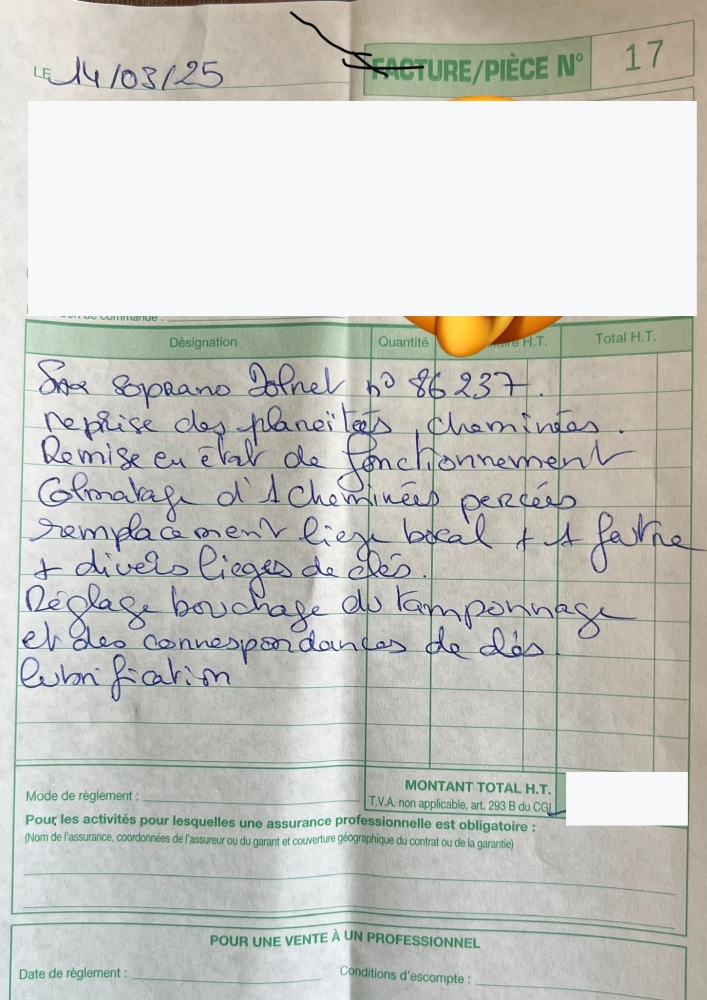 LE 14/03/25
FACTURE/PIÈCE N° 17
Désignation Quantité H.T. Total H.T.
Sax soprano Dolnet n° 86237.
reprise des planeïtées, cheminées.
Remise en état de fonctionnement
Colmatage d'1 cheminées percées
remplacement liege bocal + 1 feutre
+ divers lieges de clés.
Réglage bouchage du tamponnage
et des correspondances de clés.
lubrification
Mode de règlement :
MONTANT TOTAL H.T.
T.V.A. non applicable, art. 293 B du CGI
Pour les activités pour lesquelles une assurance professionnelle est obligatoire :
(Nom de l'assurance, coordonnées de l'assureur ou du garant et couverture géographique du contrat ou de la garantie)
POUR UNE VENTE À UN PROFESSIONNEL
Date de règlement :
Conditions d'escompte :